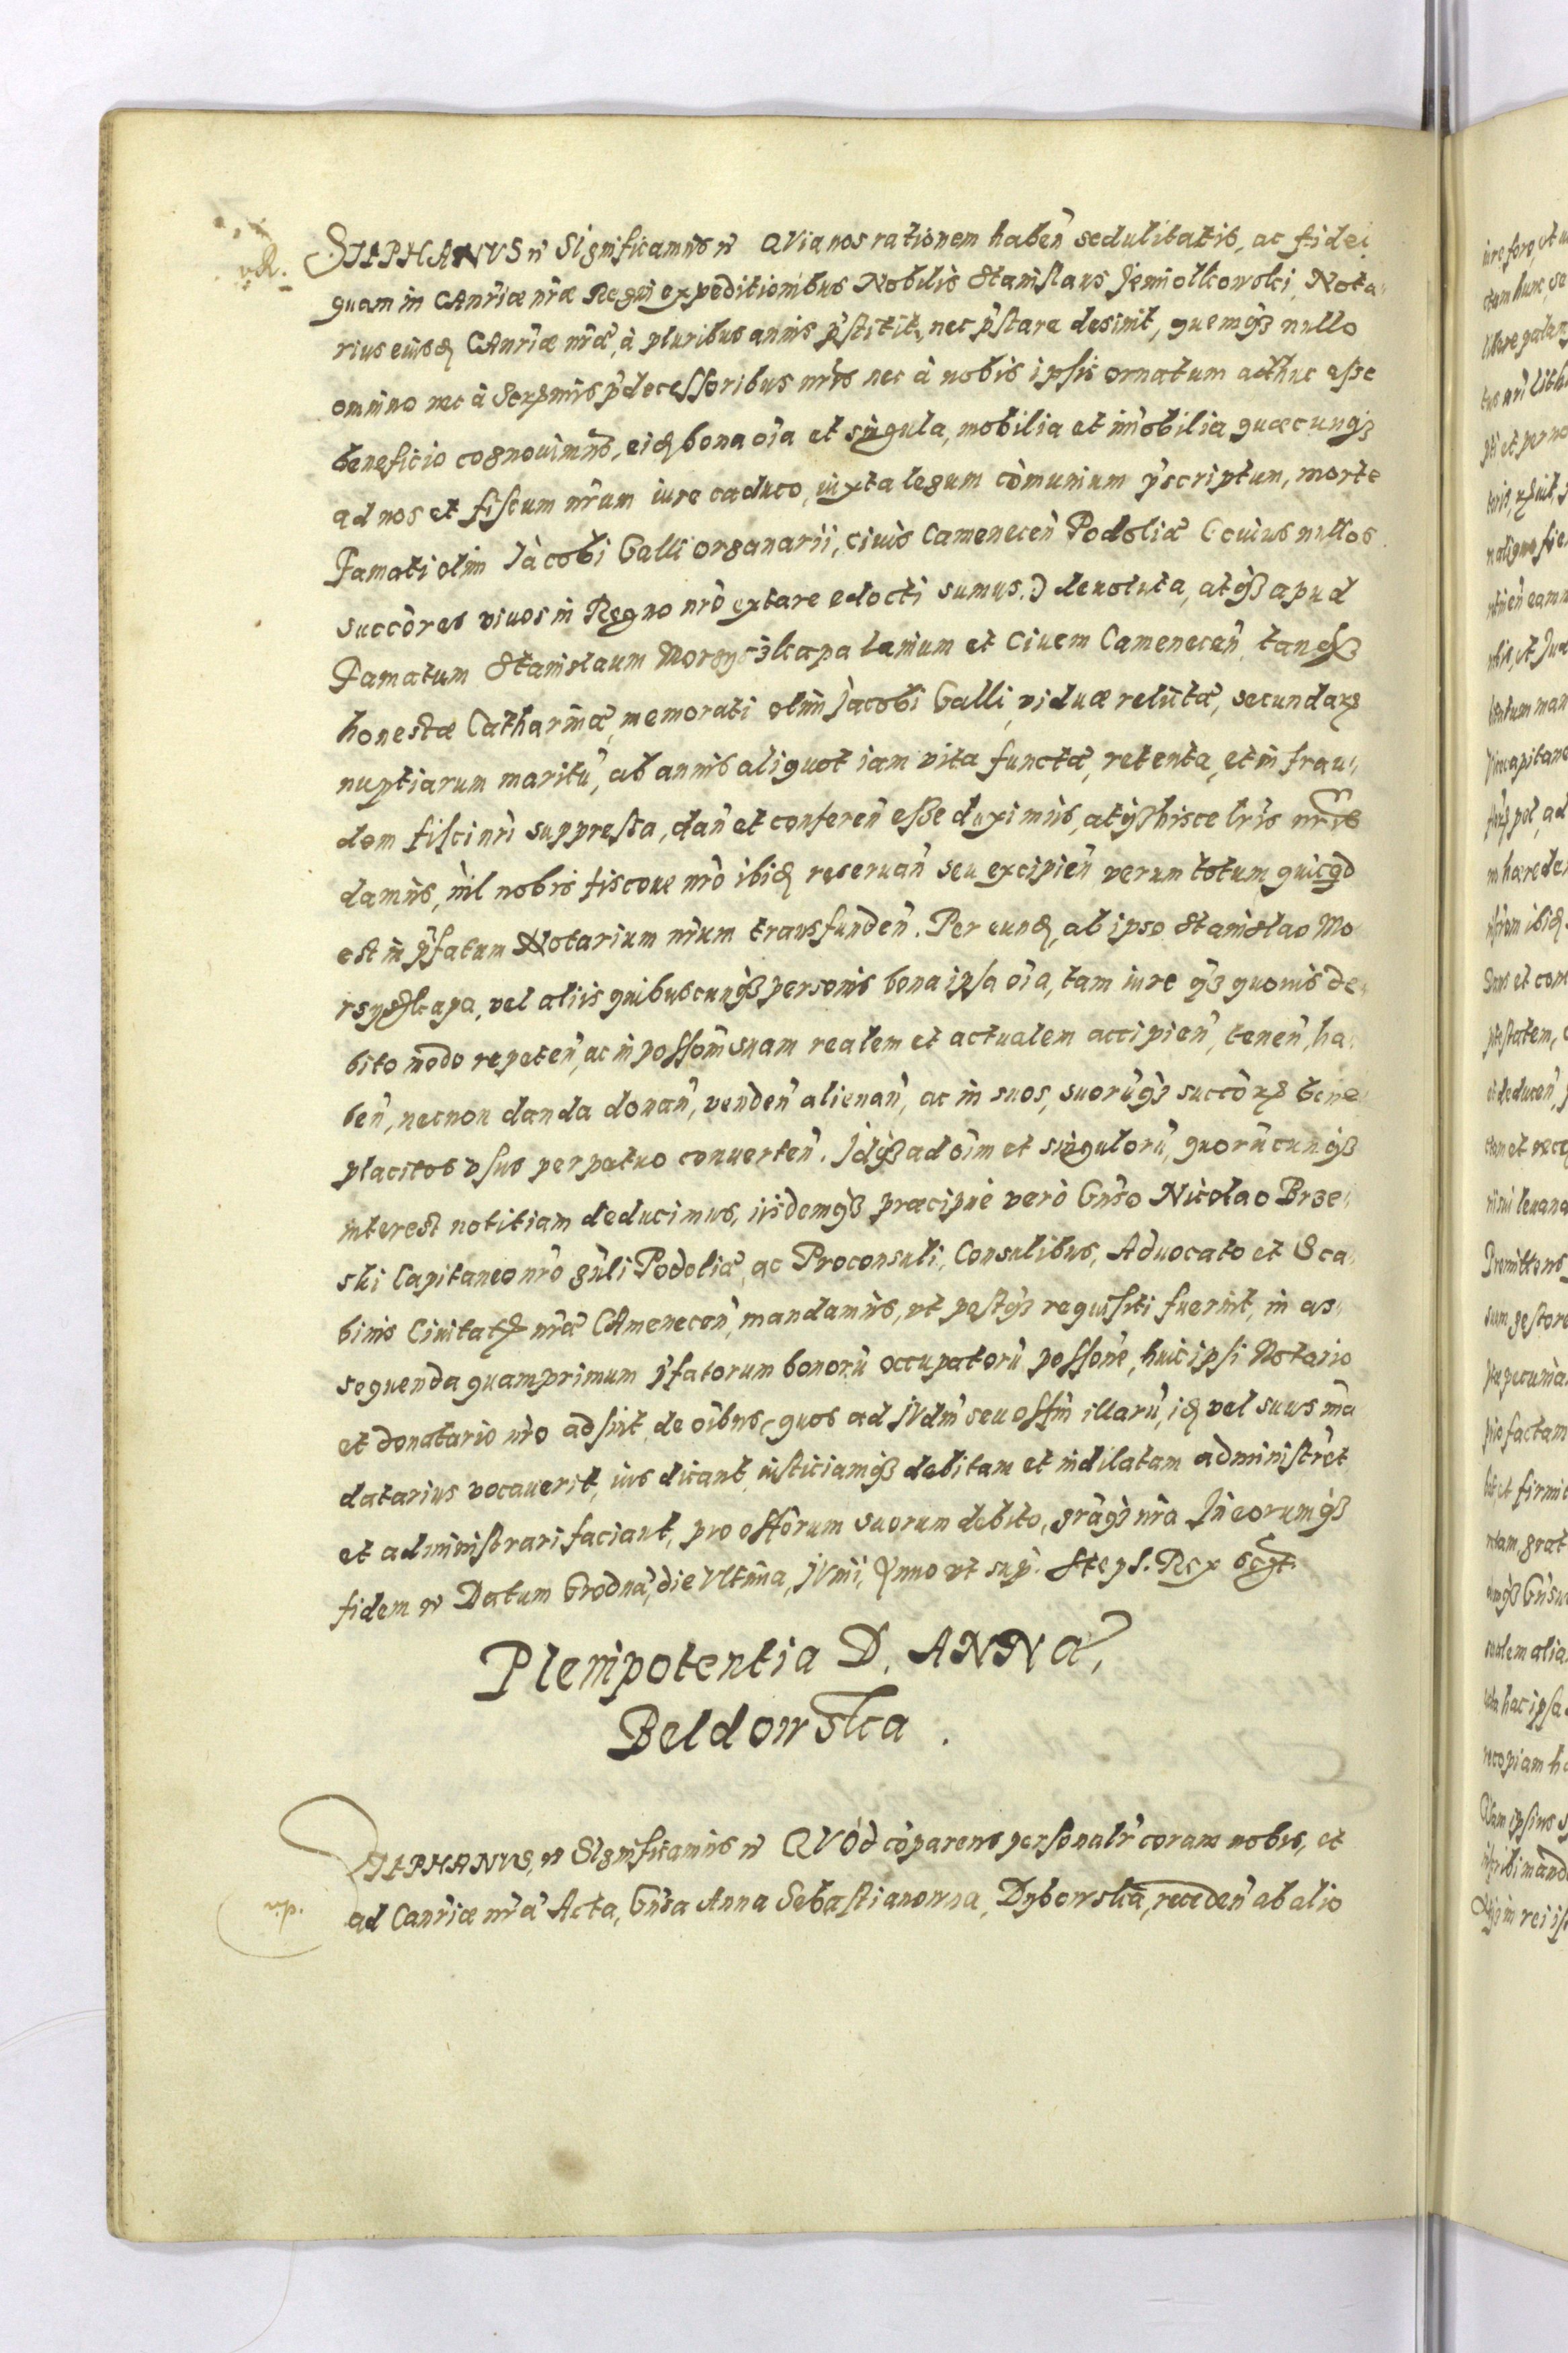 STEPHANVS etc Significamus etc QVia nos rationem haben̄ sedulitatis, ac fidei,
quam in CAnr̄iæ nr̄æ Regni expeditionibus Nobilis Stanislaus Jemiolkowski, Nota-
rius eiusd. CAnr̄iæ nr̄æ, à pluribus annis p̄stitit, nec p̄stare desinit, quemq3 nullo
omnino nec à Ser̄mis p̄decessoribus nr̄is nec à nobis ipsis ornatum adhuc esse
beneficio cognouimus, eid. bona oīa et singula, mobilia et im̄obilia quæcunq3
ad nos et fiscum nr̄um iure caduco, iuxta legum cōmunium p̄scriptum, morte
Famati olim Jacobi Galli organarii, ciuis Camenecen̄ Podoliæ (cuius nullos
succōres viuos in Regno nr̄o extare edocti sumus.) deuoluta, atq3 apud
Famatum Stanislaum Morsyszkapa lanium et Ciuem Camenecen̄ tanq3
honestæ Catharinæ, memorati olim Jacobi Galli, viduæ relictæ, secundar
nuptiarum maritū, ab annis aliquot iam vita functæ, retenta, et in frau-
dem fisci nr̄i suppressa, dan̄ et conferen̄ esse duximus, atq3 hisce lr̄is nr̄is
damus, nil nobis fiscoue nr̄o ibid. reseruan̄ seu excipien̄ verum totum quicqd
est in p̄fatum Notarium nr̄um transfunden̄. Per eund. ab ipso Stanislao Mo-
rsyszkapa, vel aliis quibuscunq3 personis bona ipsa oīa, tam iure q3 quouis de-
bito modo repeten̄, ac in possom̄ suam realem et actualem accipien̄, tenen̄, ha-
ben̄, necnon danda donan̄, venden̄ alienan̄, ac in suos, suorūq3 succor̄ bene
placitos vsus perpetuo conuerten̄. Jdq3 ad oīm et singulorū, quorūcunq3
interest notitiam deducimus, iisdemq3 præcipuè verò Gn̄so Nicolao Brze-
ski Capitaneo nr̄o gn̄li Podoliæ, ac Proconsuli, Consulibus, Aduocato et Sca-
binis Ciuitatis nr̄æ CAmenecen̄, mandamus, vt postq3 requisiti fuerint, in as-
sequenda quamprimum p̄fatorum bonorū occupatorū possone, huic ipsi Notario
et donatario nr̄o adsint, de oībus, quos ad JVdm̄ seu offm̄ illarū, id. vel suus mā
datarius vocauerit, ius dicant, iusticiamq3 debitam et indilatam administrēt
et administrari faciant, pro offōrum suorum debito, grāq3 nr̄a Jn eorumq3
fidem etc Datum Grodnæ, die Vltima, JVnii, Anno vt sup̄. Steph. Rex scpt.
Plenipotentia D. ANNæ,
Beldowska.
STEPHANVS, etc SIgnificamus etc QVòd cōparens personalr̄ coram nobis, et
ad Canr̄iæ nr̄æ Acta, Gn̄sa Anna Sebastianowna, Dybowska, receden̄ ab alio